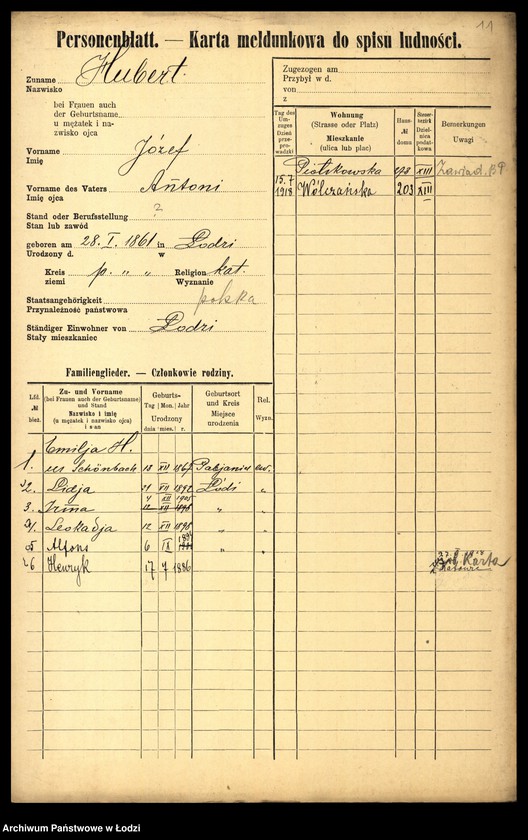 11
Personenblatt. — Karta meldunkowa do spisu ludności.
Zuname Hubert
Nazwisko
bei Frauen auch
der Geburtsname
u mężatek i na-
zwisko ojca
Vorname Józef
Imię
Vorname des Vaters Antoni
Imię ojca
Stand oder Berufsstellung ?
Stan lub zawód
geboren am 28. I. 1861 in Łodzi
Urodzony d. w
Kreis p. " " Religion kat.
ziemi Wyznanie
Staatsangehörigkeit polska
Przynależność państwowa
Ständiger Einwohner von Łodzi
Stały mieszkaniec
Zugezogen am
Przybył w d.
von
z
Tag des Um-
zuges
Dzień
prze-
prowadzki
Wohnung
(Strasse oder Platz)
Mieszkanie
(ulica lub plac)
Haus-
№
domu
Steuer-
bezirk
Dziel-
nica
podat-
kowa
Bemerkungen
Uwagi
Piotrkowska 198 XIII Zawiad. B.P.
15.7 1918 Wólczańska 203 XIII
Familienglieder. — Członkowie rodziny.
Lfd.
№
bież.
Zu- und Vorname
(bei Frauen auch der Geburtsname)
und Stand
Nazwisko i imię
(u mężatek i nazwisko ojca)
i stan
Geburts-
Tag Mon. Jahr
Urodzony
dnia mies. r.
Geburtsort
und Kreis
Miejsce
urodzenia
Rel.
Wyzn.
Emilja H.
1. ur Schönbach 18 XII 1867 Pabjanice ew.
2. Lidja 21 VII 1892 Łódź "
4 XII 1905
3. Irena 12 XII 1898 " "
4. Leokadja 12 XII 1898 " "
5 Alfons 6 IX "  "
6 Henryk 17 7 1886
Karta
Archiwum Państwowe w Łodzi